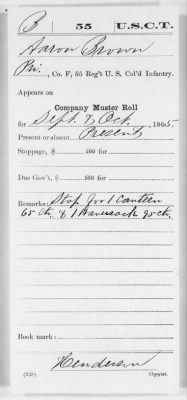 B 55 U.S.C.T.
Aaron Brown
Pvt., Co. F, 55 Reg't U. S. Col'd Infantry.
Appears on
Company Muster Roll
for Sept. & Oct., 1865.
Present or absent Present
Stoppage, $ 100 for
Due Gov't, $ 100 for
Remarks: Stop for 1 Canteen
65 cts. & 1 Haversack 95 cts.
Book mark:
Henderson
(358) Copyist.